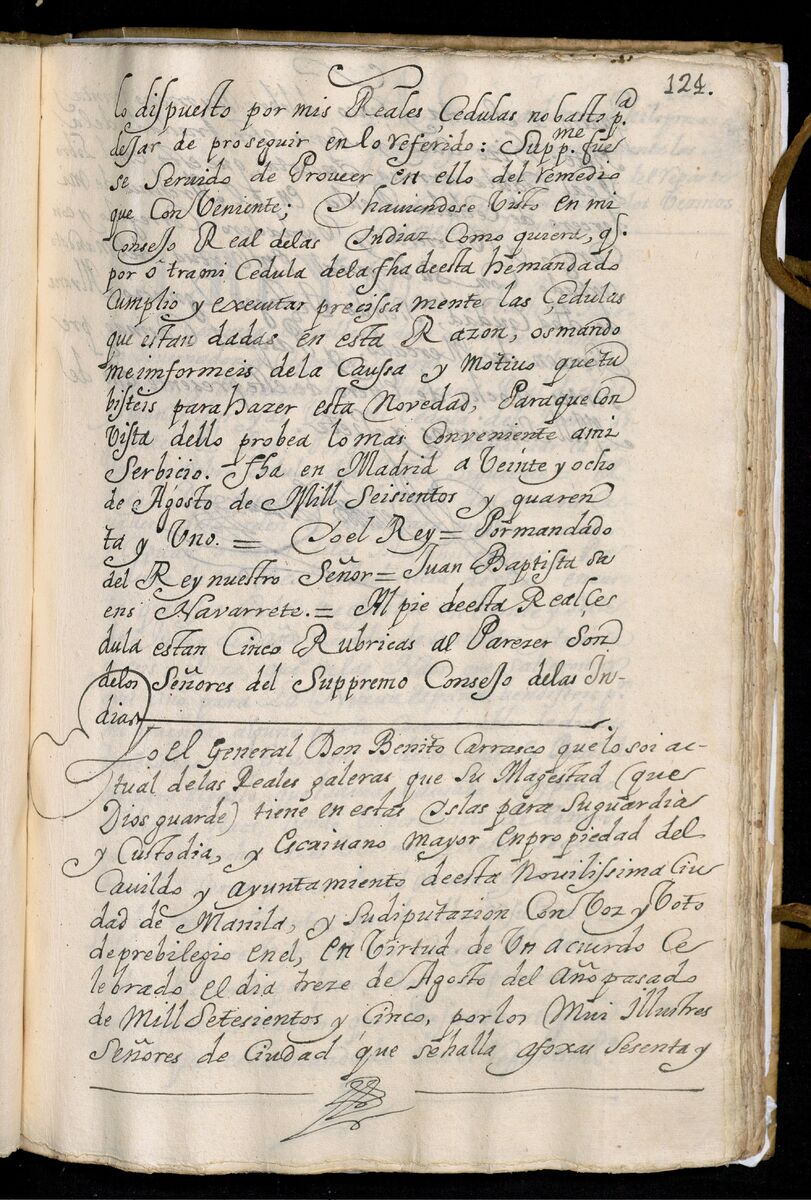 124.
lo dispuesto por mis Reales Cedulas no basto p.a
dejar de proseguir en lo referido: Supp.me fue
se Servido de Proueer en ello del remedio
que ConVeniente; Y hauiendose Visto en mi
Consejo Real delas Indiaz Como quiera, q.
por otra mi Cedula dela fha deesta hemandado
Cumplio y executar precissa mente las Çedulas
que estan dadas en esta Razon, osmando
me imformeis dela Caussa y Motiuo quetu
bisteis para hazer esta Novedad, Paraque Con
Vista dello probea lo mas Conveniente ami
Serbicio. fha en Madrid a Veinte y ocho
de Agosto de Mill Seisientos y quaren
ta y Uno. = Yo el Rey = Pormandado
del Rey nuestro Señor = Juan Baptista sa
ens Navarrete. = Al pie deesta Real Çe
dula estan Cinco Rubricas al Parezer Son
delos Señores del Suppremo Consejo delas In-
dias
Yo el General Don Benito Carrasco que lo soi ac-
tual de las Reales galeras que Su Magestad (que
Dios guarde) tiene en estas Yslas para Suguardia
y Custodia, y Escriuano mayor Enpropiedad del
Cauildo y ayuntamiento deesta Nouilissima Ciu
dad de Manila, y Sudiputazion Con Voz y Voto
deprebilegio en el, en Virtud de Un acuerdo Ce
lebrado el dia treze de Agosto del Año pasado
de Mill Setesientos y Cinco, por los Mui Illustres
Señores de Ciudad que sehalla afoxas Sesenta y